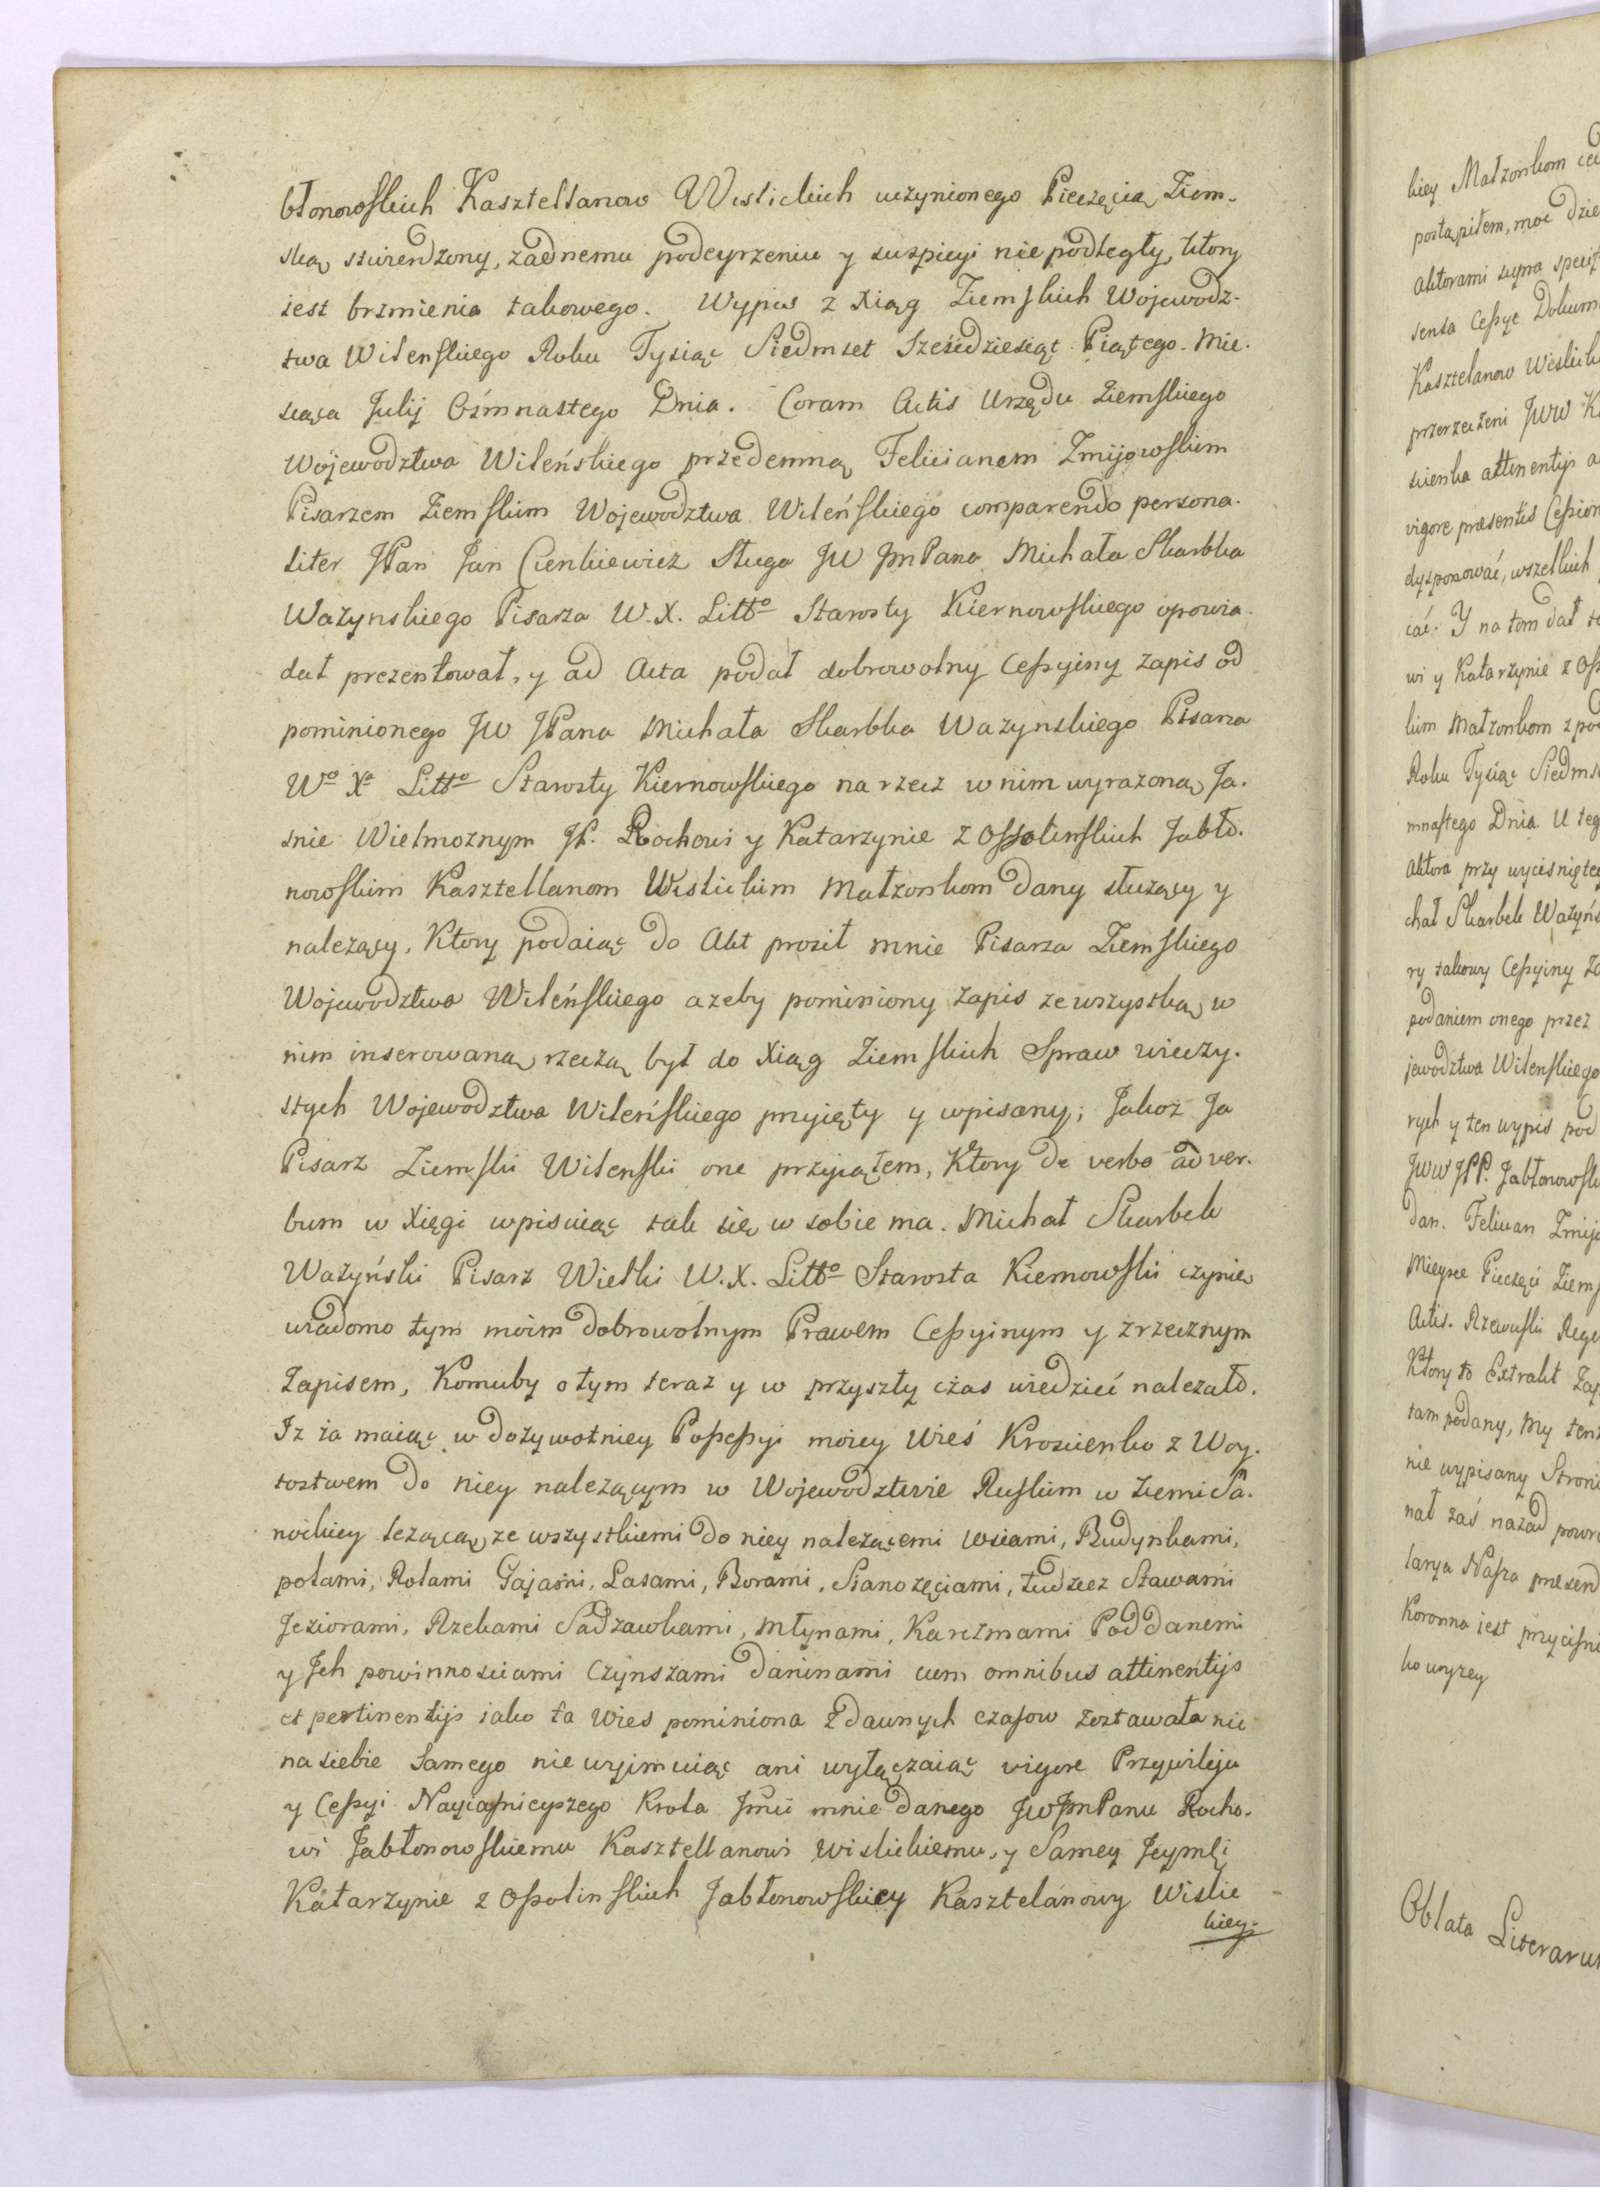 błonowskich Kasztellanow Wislickich uczynionego Pieczęcią Ziem-
ską stwierdzony, żadnemu podeyrzeniu y suspicyi nie podległy, ktory
iest brzmienia takowego. Wypis z Xiąg Ziemskich Wojewodz-
twa Wilenskiego Roku Tysiąc Siedmset Sześcdziesiąt Piątego. Mie-
siąca Julij Osmnastego Dnia. Coram Actis Urzędu Ziemskiego
Wojewodztwa Wileńskiego przedemną Felicianem Zmijowskim
Pisarzem Ziemskim Wojewodztwa Wileńskiego comparendo persona-
liter JPan Jan Cienkiewicz Sługa JW JmPana Michała Skarbka
Wazynskiego Pisarza W. X. Litto Starosty Kiernowskiego opowia-
dał prezentował, y ad Acta podał dobrowolny Cessyiny zapis od
pominionego JW JPana Michała Skarbka Wazynskiego Pisarza
Wo Xa Litto Starosty Kiernowskiego na rzecz w nim wyrazoną Ja-
snie Wielmoznym JP. Rochowi y Katarzynie z Ossolinskich Jabło-
nowskim Kasztellanom Wislickim Małzonkom dany służący y
nalezący, Ktory podaiąc do Akt prosił mnie Pisarza Ziemskiego
Wojewodztwa Wileńskiego azeby pominiony zapis ze wszystką w
nim inserowaną rzeczą był do Xiąg Ziemskich Spraw wieczy-
stych Wojewodztwa Wileńskiego przyięty y wpisany; Jakoz Ja
Pisarz Ziemski Wilenski one przyiąłem, Ktory de verbo ad ver-
bum w Xięgi wpisuiąc tak się w sobie ma. Michał Skarbek
Ważyński Pisarz Wielki W. X. Litto Starosta Kiernowski czynię
wiadomo tym moim dobrowolnym Prawem Cessyinym y zrzecznym
Zapisem, Komuby o tym teraz y w przyszły czas wiedzieć nalezało.
Iz ia maiąc w dożywotniey Possessyi moiey Wieś Kroscienko z Woy-
tostwem do niey nalezącym w Wojewodztwie Ruskim w Ziemi Sa-
nockiey leżącą, ze wszystkiemi do niey należącemi wsiami, Budynkami,
polami, Rolami Gajami, Lasami, Borami, Sianozęciami, tudziez Stawami
Jeziorami, Rzekami Sadzawkami, Młynami, Karczmami Poddanemi
y Jch powinnosciami Czynszami daninami cum omnibus attinentijs
et pertinentijs iako ta Wies pominiona z dawnych czasow zostawała nic
na siebie samego nie wyimuiąc ani wyłączaiąc vigore Przywileju
y Cessyi Nayiasnieyszego Krola Jmci mnie danego JW JmPanu Rocho-
wi Jabłonowskiemu Kasztellanowi Wislickiemu, y Samey Jeymci
Katarzynie z Ossolinskich Jabłonowskiey Kasztelanowy Wislic
kiey.
kiey Małzonkom
postąpiłem, moc
aktorami
Kasztelanow
przerzeczeni JWW
vigore præsentis
dysponować, wszelkich
cać. Y na tom dał
wi y Katarzynie z
kim Małzonkom
Roku Tysiąc
mnastego Dnia
Aktora przy wycisnięte
chał Skarbek
ry takowy Cessyiny
podaniem onego przez
jewodztwa Wilenskiego
rych y ten wypis pod
JWW JPP. Jabłonowsk
dan. Felician
Mieysce Pieczęci
Actis.
Ktory to Extrakt
tam podany, My
nie wypisany
nał zaś nazad
Koronna iest
ko wyzey
Oblata